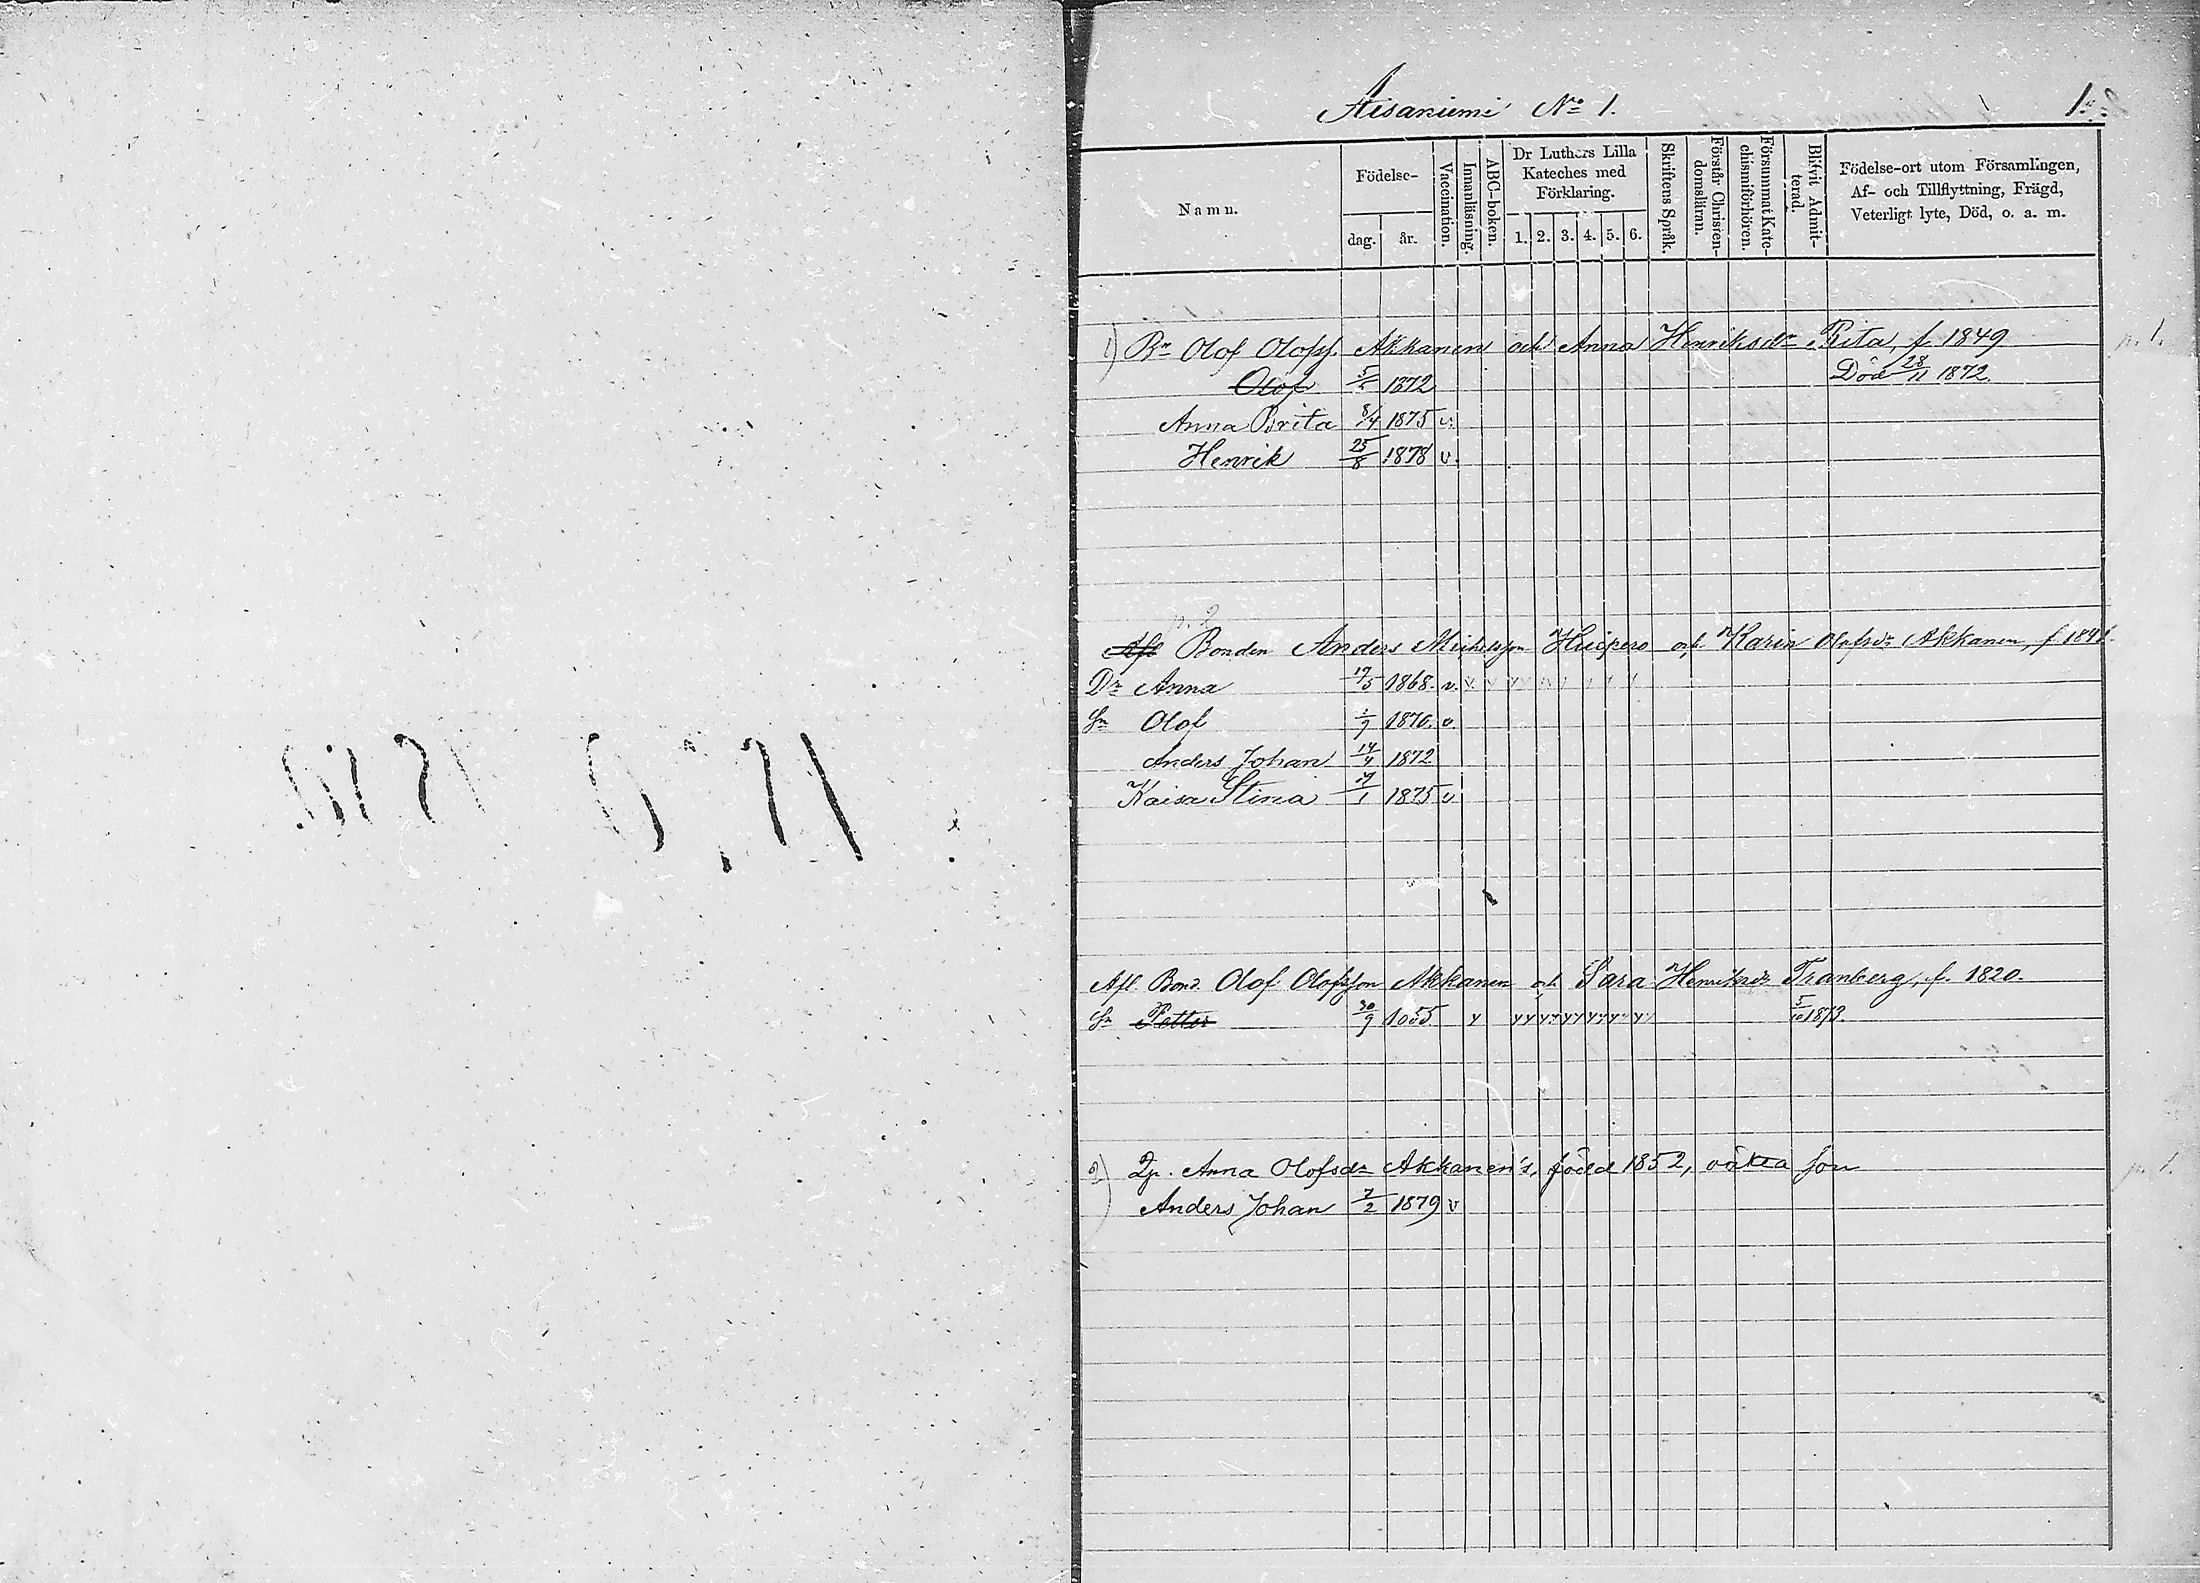 No 1.
1.
Namn.
Födelse-
dag.
år.
Vaccination.
Innanläsning.
ABC-boken.
Dr Luthers Lilla Kateches med Förklaring.
1. 2. 3. 4. 5. 6.
Skriftens Språk.
Förstår Christendomsläran.
Försummat Katechismiförhören.
Blifvit Admitterad.
Födelse-ort utom Församlingen,
Af- och Tillflyttning, Frägd,
Veterligt lyte, Död, o. a. m.
1) Bn Olof Olofss. Akkanen och Anna Henriksdr Rita, f. 1849 p. 1.
Olof 1872 Död 28/11 1872.
Anna Brita 8/4 1875 v.
Henrik 25/8 1878 v.
p. 2
Afl Bonden Anders Michelsson och Karin Olofsdr Akkanen, f.
Dr Anna 17/5 1868. v. v v
Sn Olof 1870. v.
Anders Johan 14/4 1872
Kaisa Stina 1875 v
Afl. Bond. Olof Olofsson Akkanen och Sara Henriksdr Tranberg, f. 1820.
Sn Petter 30/9 1855 v 5/10 1873.
2) Anna Olofsdr Akkanen's, född 1852, oäkta son p. 1.
Anders Johan 7/2 1879 v